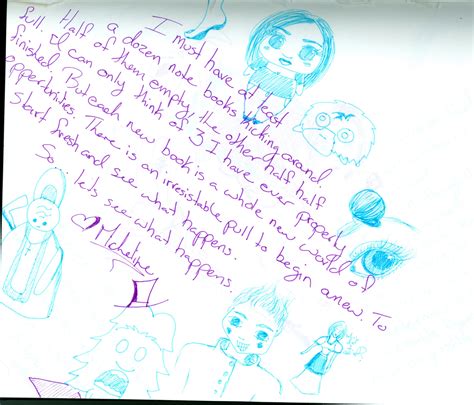 I must have at least
a dozen note books kicking around.
Half of them empty, the other half half
full. I can only think of 3 I have ever properly
finished. But each new book is a whole new world of
oppertunities. There is an irresistable pull to begin anew. To
start fresh and see what happens.
So... lets see what happens.
Micheline